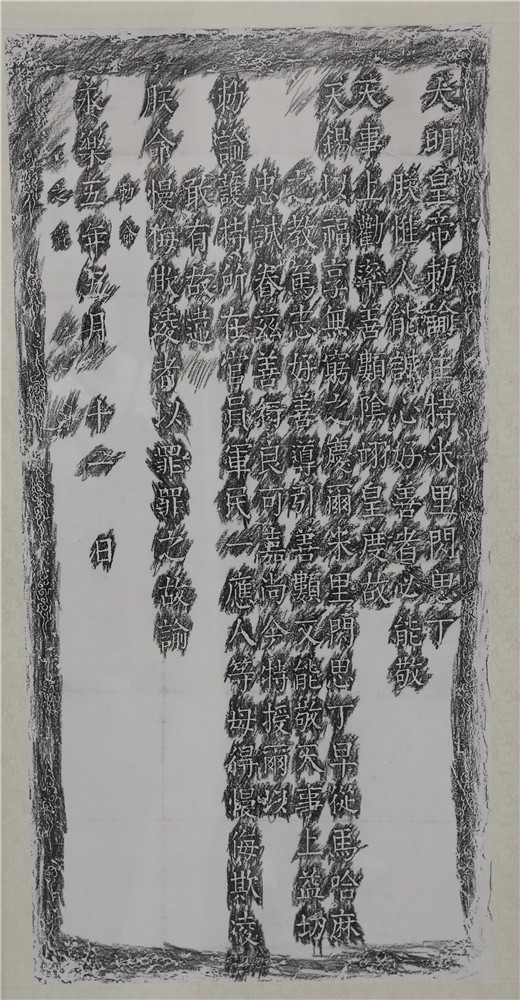 大明皇帝勑諭特米里閃思丁
朕惟人能誠心好善者必能敬
天事上勸率善類陰翊皇度故
天錫以福享無窮之慶爾米里閃思丁早從馬哈麻
之教篤志好善導引善類又能敬天事上益
忠誠眷兹善行良可嘉尚今特授爾以
勑諭護持所在官員軍民一應人等毋得慢侮欺凌
敢有故違
朕命慢侮欺凌者以罪罪之故諭
勑命
永樂五年五月十一日